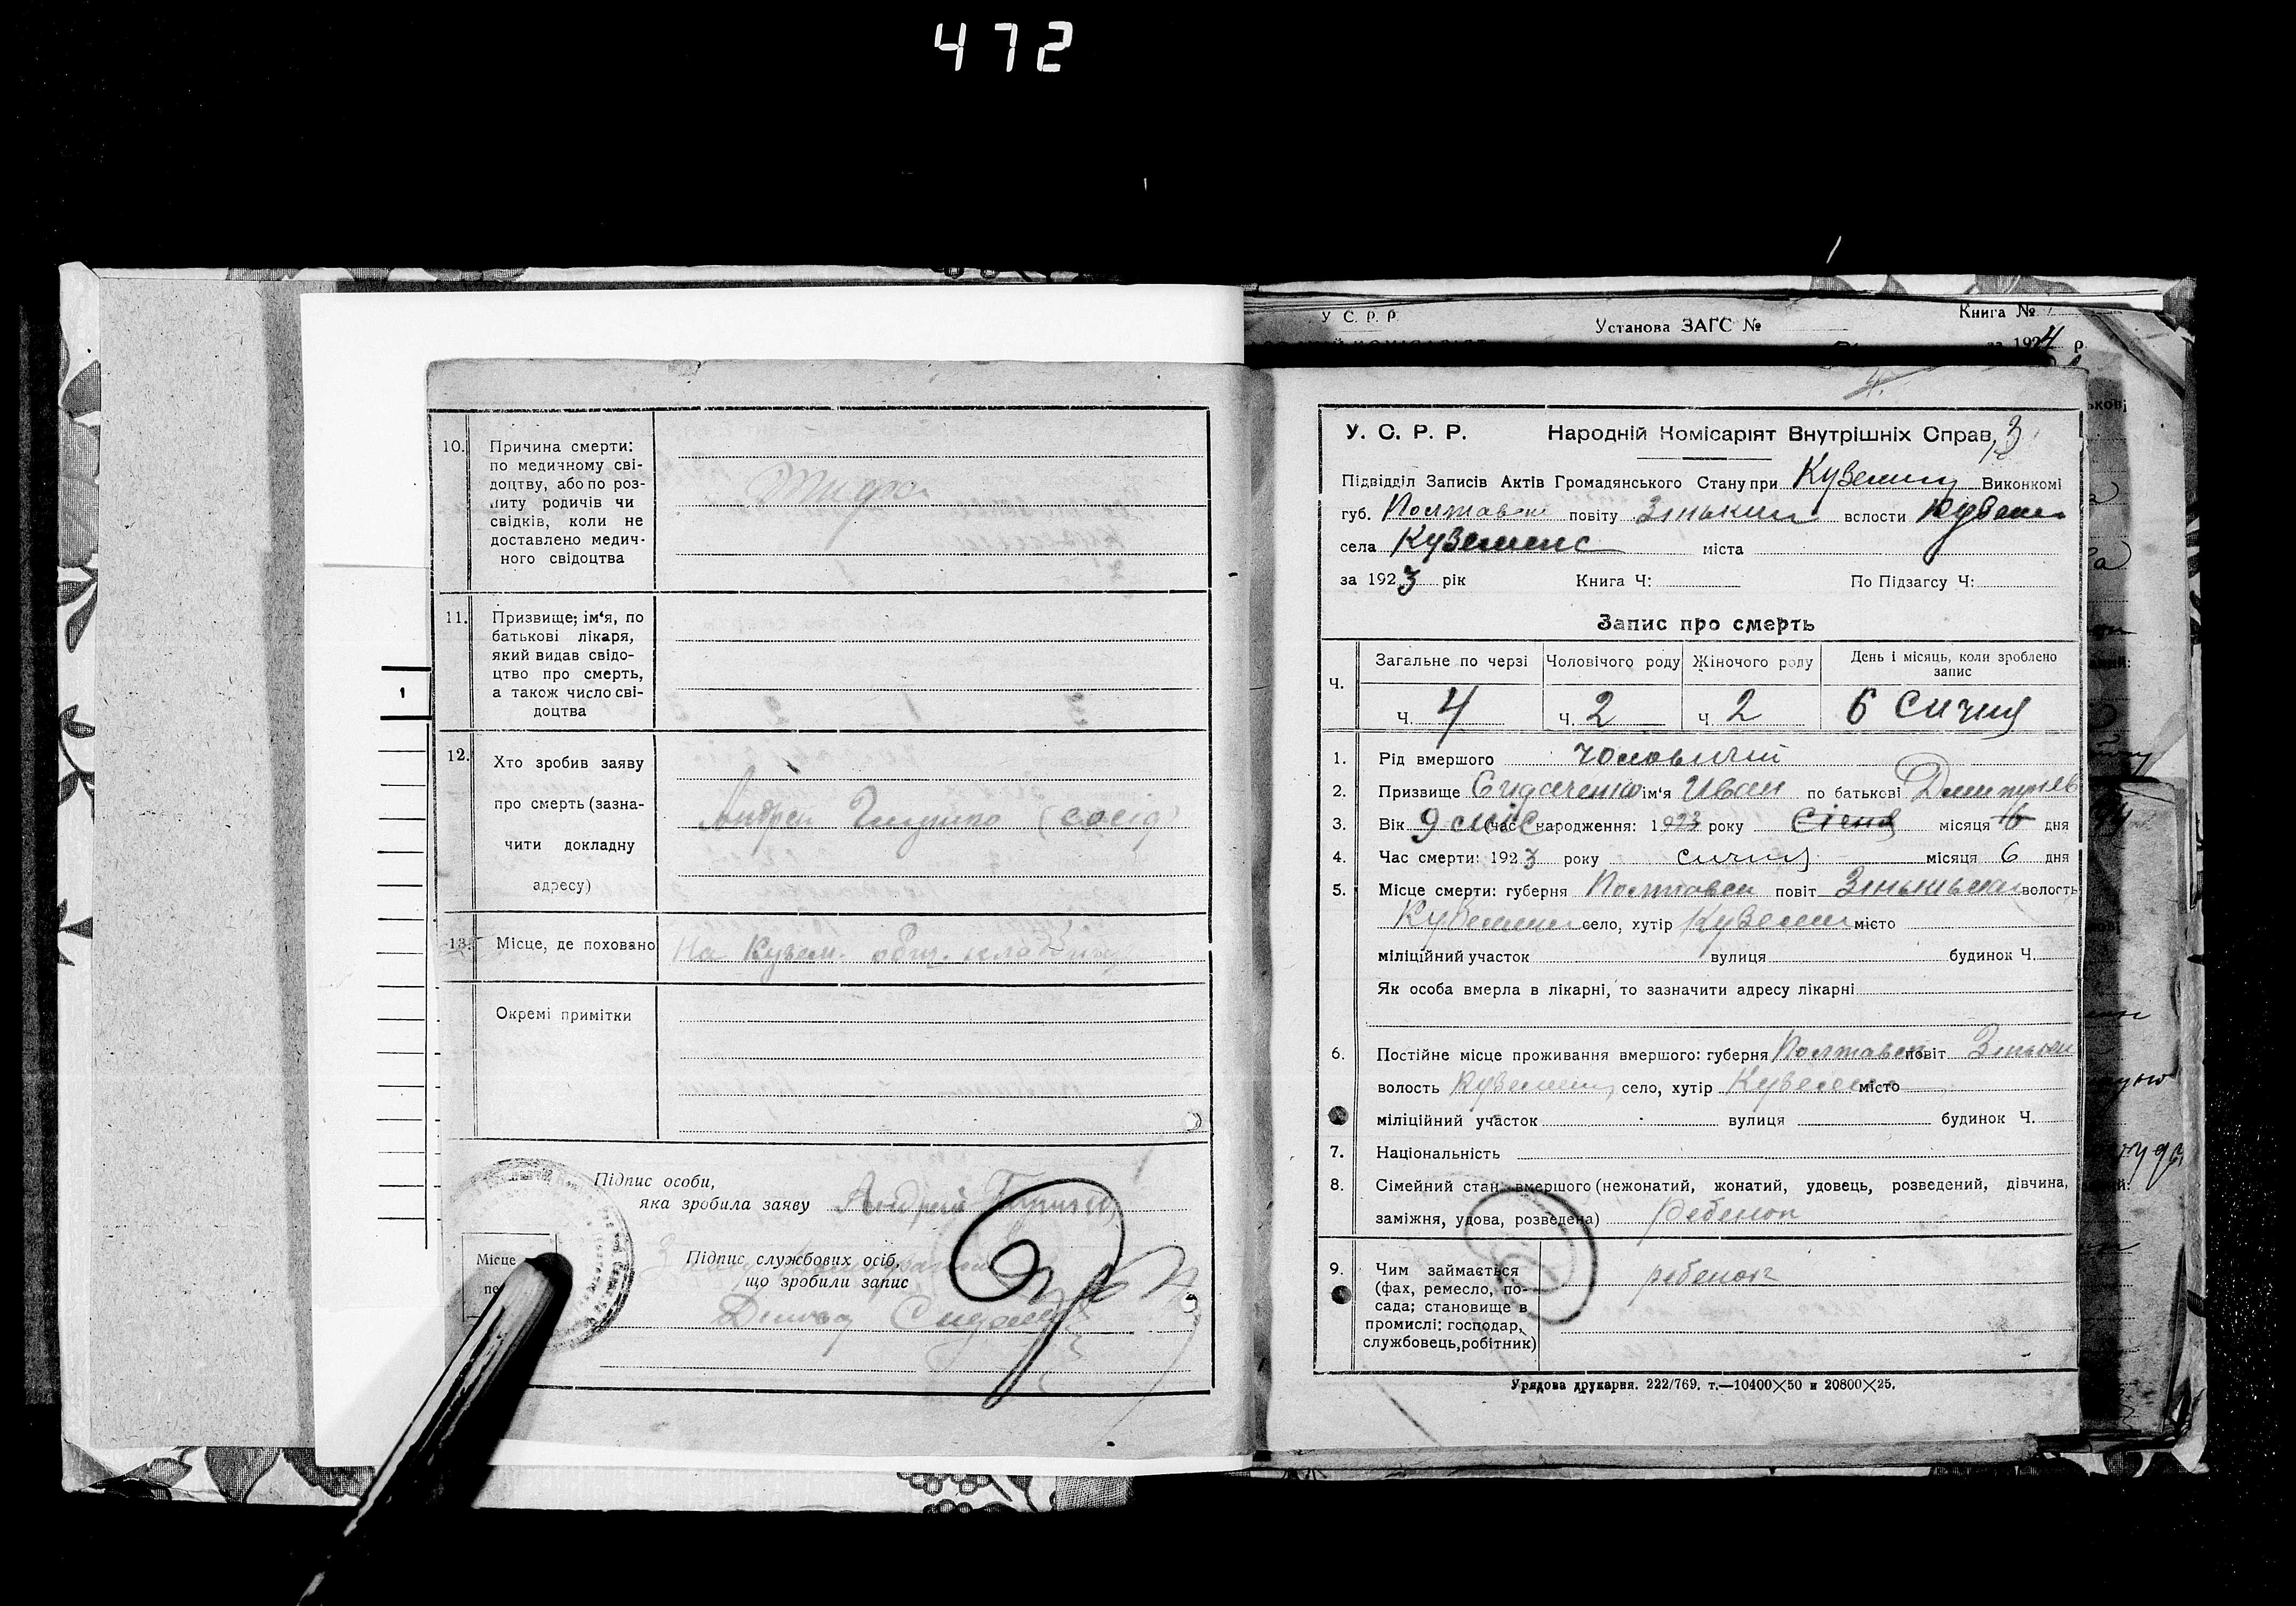 472
10. Причина смерти:
по медичному сві-
доцтву, або по роз-
питу родичів чи
свідків, коли не
доставлено медич-
ного свідоцтва
11. Призвище; ім'я, по
батькові лікаря,
який видав свідо-
цтво про смерть,
а також число сві-
доцтва
1
12. Хто зробив заяву
про смерть (зазна-
чити докладну
адресу)
Андрей (сосід)
13. Місце, де поховано На Кузем. общ. кладбищ
Окремі примітки
Підпис особи,
яка зробила заяву Андрей
Підпис службових осіб,
що зробили запис
Місце
У. С. Р. Р.
Установа ЗАГС №
Книга №
за 1924 р.
4.
У. С. Р. Р. Народній Комісаріят Внутрішніх Справ 3
Підвідділ Записів Актів Громадянського Стану при Куземин Виконкомі
губ. Полтавськ повіту Зіньким волости Кузем
села Куземенс міста
за 1923 рік Книга Ч: По Підзагсу Ч:
Запис про смерть
Ч. Загальне по черзі Чоловічого роду Жіночого роду День і місяць, коли зроблено
запис
Ч. 4 Ч. 2 Ч. 2 6 Сичня
1. Рід вмершого чоловичий
2. Призвище Сидоренко ім'я Иван по батькові Дмитриев
3. Вік 9 міс (час народження: 1923 року Січня місяця 6 дня
4. Час смерти: 1923 року сичня місяця 6 дня
5. Місце смерти: губерня Полтавськ повіт Зіньківськ волость
Куземин село, хутір Куземин місто
міліційний участок вулиця будинок Ч.
Як особа вмерла в лікарні, то зазначити адресу лікарні
6. Постійне місце проживання вмершого: губерня Полтавск повіт Зиньков
волость Куземин село, хутір Куземен місто
міліційний участок вулиця будинок Ч.
7. Національність
8. Сімейний стан вмершого (нежонатий, жонатий, удовець, розведений, дівчина,
заміжня, удова, розведена) Ребенок
9. Чим займається ребенок
(фах, ремесло, по-
сада; становище в
промислі: господар,
службовець, робітник)
Урядова друкарня. 222/769. т.—10400×50 и 20800×25.